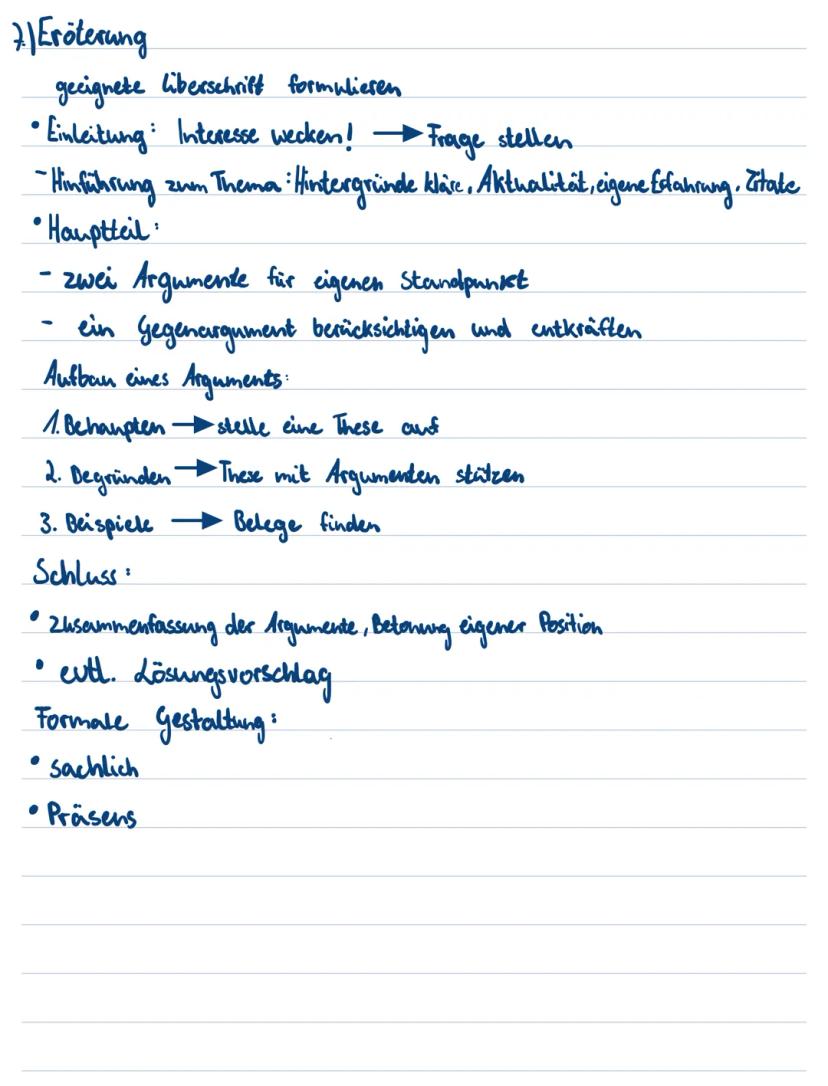 7.) Eröterung
geeignete Überschrift formulieren
• Einleitung: Interesse wecken! → Frage stellen
- Hinführung zum Thema: Hintergründe kläre, Aktualität, eigene Erfahrung, Zitate
• Hauptteil:
- zwei Argumente für eigenen Standpunkt
- ein Gegenargument berücksichtigen und entkräften
Aufbau eines Arguments:
1. Behaupten → stelle eine These auf
2. Begründen → These mit Argumenten stützen
3. Beispiele → Belege finden
Schluss:
• Zusammenfassung der Argumente, Betonung eigener Position
• evtl. Lösungsvorschlag
Formale Gestaltung:
• sachlich
• Präsens